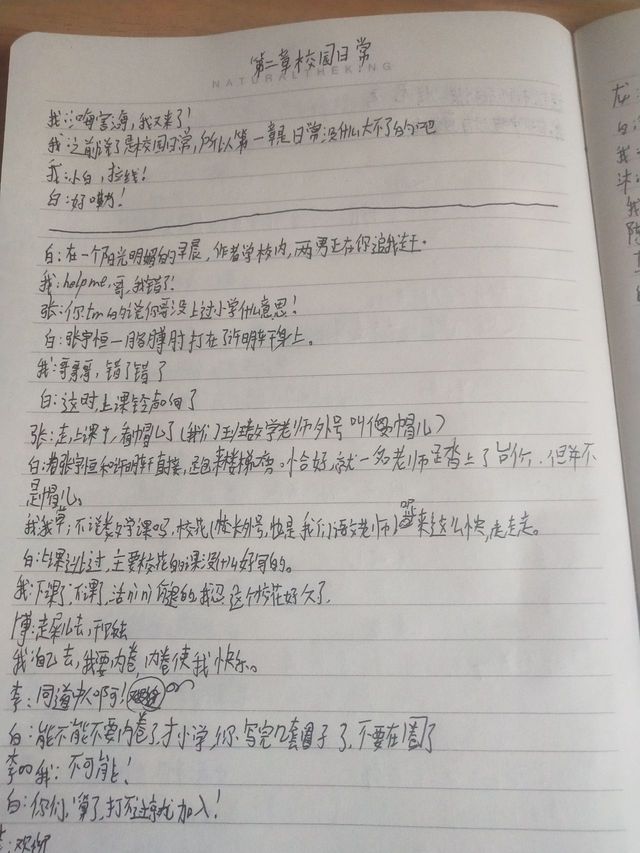 第二章校园日常
NATURALTHEKING
我:嗨害海,我又来了!
我:之前说了是校园日常,所以第一章是日常没什么大不了的吧
我:小白,拉线!
白:好嘞!
白:在一个阳光明媚的早晨,作者学校内,两男正在你追我赶。
我:help me,哥,我错了!
张:你tm的说你哥没上过小学什么意思!
白:张宇恒一肘打在了许明轩身上。
我:哥哥哥,错了错了
白:这时,上课铃响了
张:走,上课了,看帽儿了(我们王数学老师外号叫帽儿)
白:张宇恒和许明轩直接跑来楼梯旁。恰好,就一名老师踏上了台阶.但并不
是帽儿。
我:我草,不说数学课吗,校花(外号,也是我们语文老师)来这么快,走走走。
白:上课,主要校花的课没什么好写的。
我:下课了,下课了,这个校花好久了.
博:走,去
我:自己去,我要内卷,内卷使我快乐。
李:同道中人啊!
白:能不能不要内卷了,才小学,你写完几套圈子了,不要在圈了
李我:不可能!
白:你们,算了,打不过就加入!
龙:
白:
我:
我